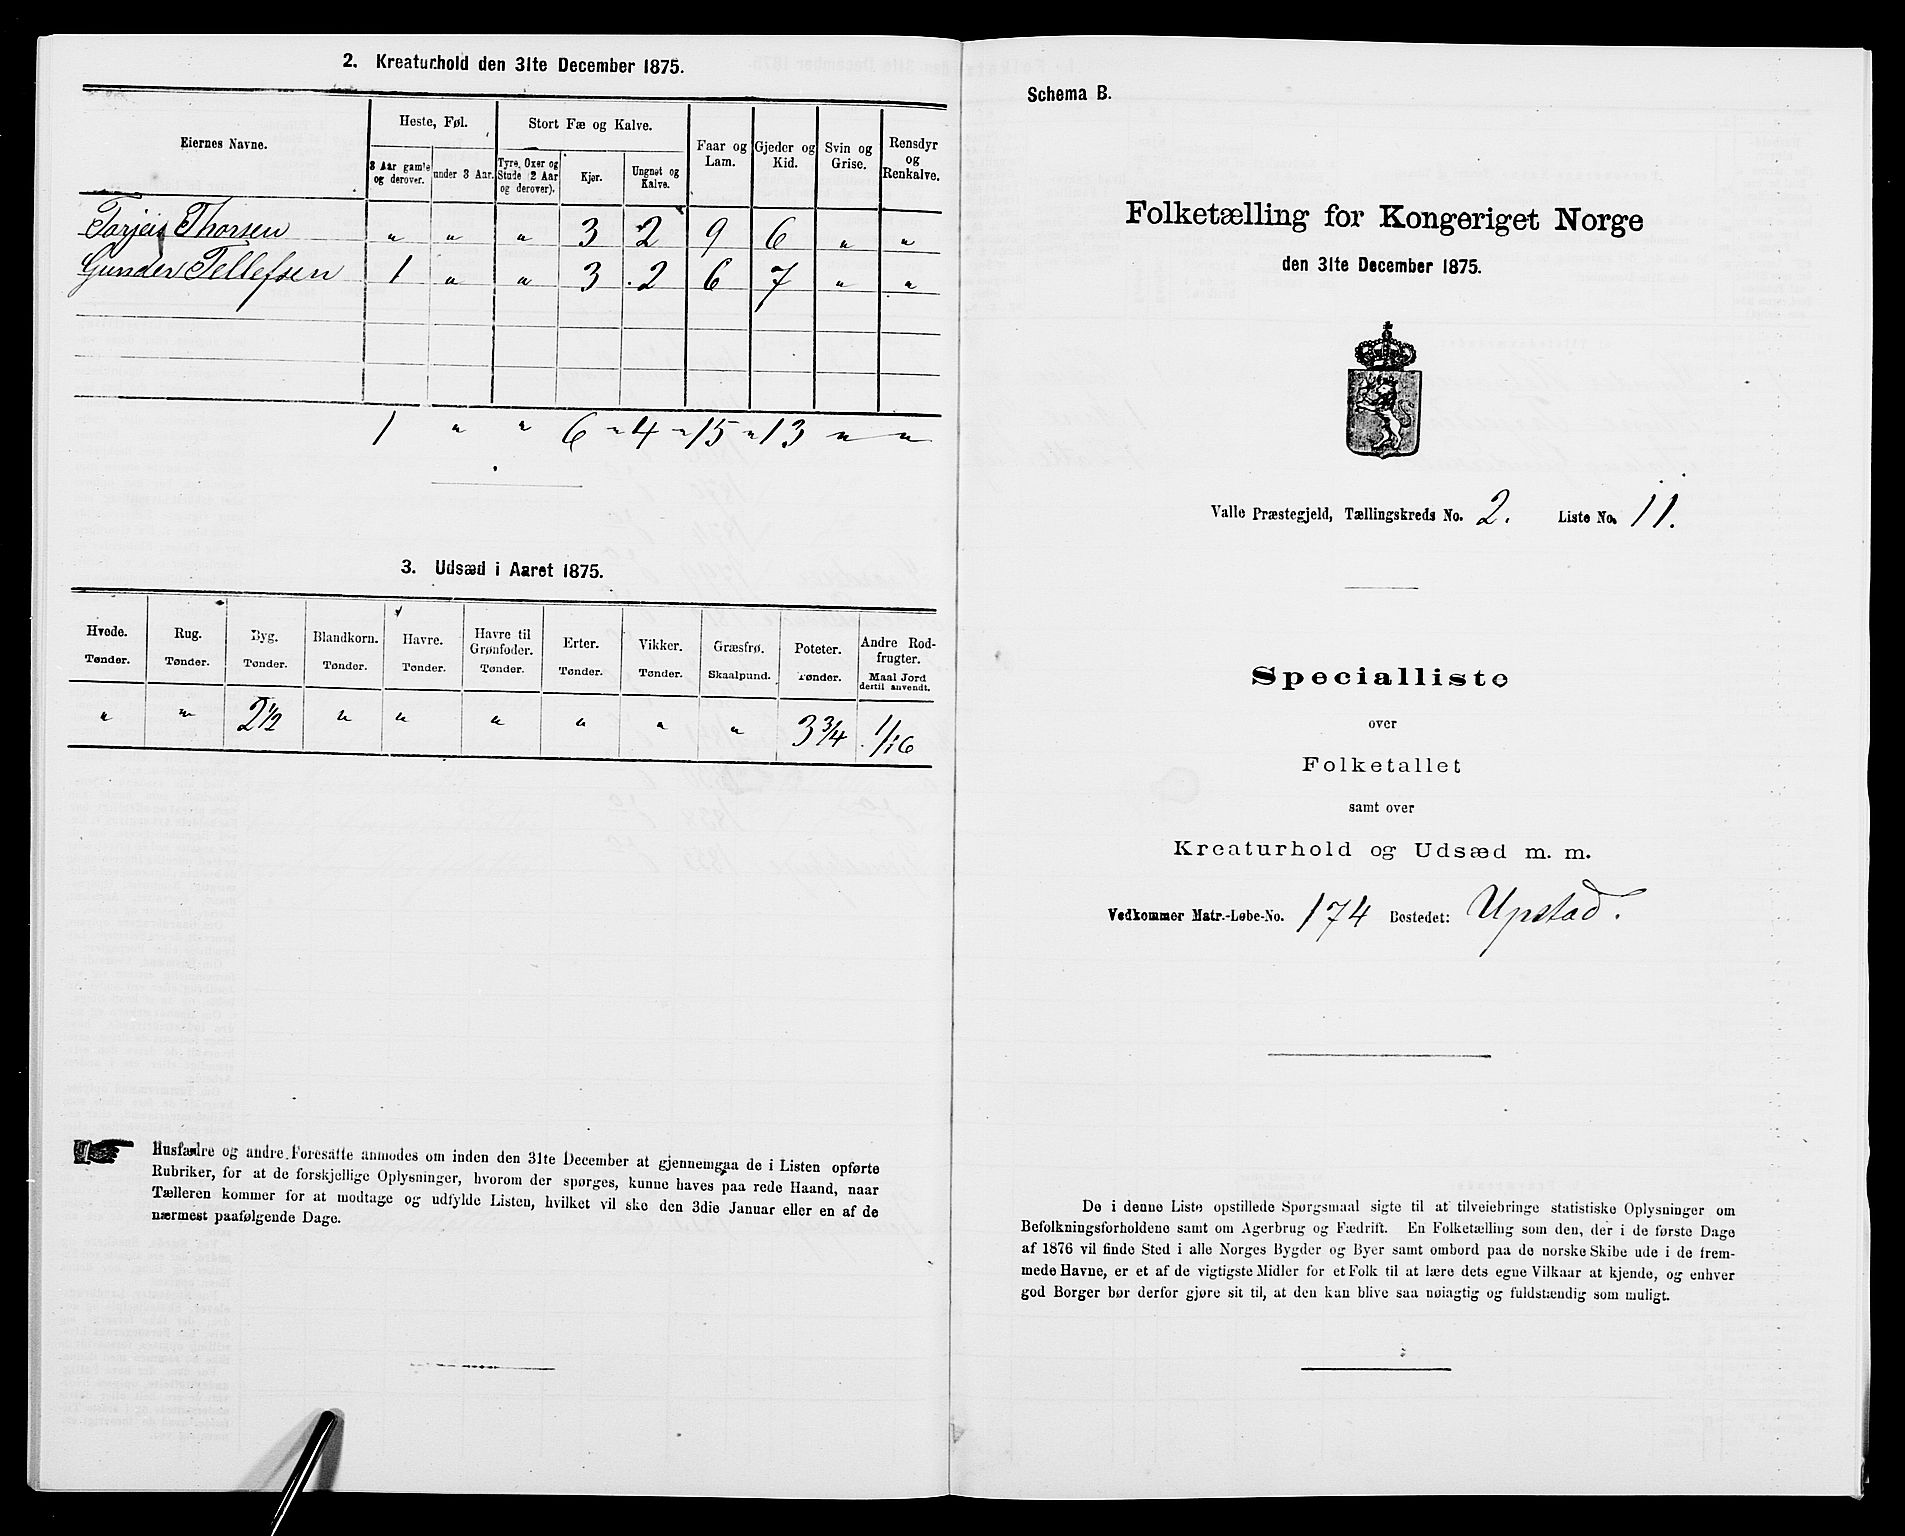 2. Kreaturhold den 31te December 1875.
Eiernes Navne.
Heste, Føl.
Stort Fæ og Kalve.
Faar og Lam.
Gjeder og Kid.
Svin og Grise.
Rensdyr og Renkalve.
3 Aar gamle og derover.
under 3 Aar.
Tyre, Oxer og Stude (2 Aar og derover).
Kjør.
Ungnøt og Kalve.
Torjeis Thorsen " " " 3 2 9 6 " "
Gunder Tellefsen 1 " " 3 2 6 7 " "
1 " " 6 " 4 " 15 " 13 " "
3. Udsæd i Aaret 1875.
Hvede. Rug. Byg. Blandkorn. Havre. Havre til Grønfoder. Erter. Vikker. Græsfrø. Poteter. Andre Rodfrugter.
Tønder. Tønder. Tønder. Tønder. Tønder. Tønder. Tønder. Tønder. Skaalpund. Tønder. Maal Jord dertil anvendt.
" " 2 1/2 " " " " " " 3 3/4 1/16
Husfædre og andre Foresatte anmodes om inden den 31te December at gjennemgaa de i Listen opførte
Rubriker, for at de forskjellige Oplysninger, hvorom der spørges, kunne haves paa rede Haand, naar
Tælleren kommer for at modtage og udfylde Listen, hvilket vil ske den 3die Januar eller en af de
nærmest paafølgende Dage.
Schema B.
Folketælling for Kongeriget Norge
den 31te December 1875.
Valle Præstegjeld, Tællingskreds No. 2. Liste No. 11.
Specialliste
over
Folketallet
samt over
Kreaturhold og Udsæd m. m.
Vedkommer Matr.-Løbe-No. 174 Bostedet: Upstad.
De i denne Liste opstillede Spørgsmaal sigte til at tilveiebringe statistiske Oplysninger om
Befolkningsforholdene samt om Agerbrug og Fædrift. En Folketælling som den, der i de første Dage
af 1876 vil finde Sted i alle Norges Bygder og Byer samt ombord paa de norske Skibe ude i de frem-
mede Havne, er et af de vigtigste Midler for et Folk til at lære dets egne Vilkaar at kjende, og enhver
god Borger bør derfor gjøre sit til, at den kan blive saa nøiagtig og fuldstændig som muligt.